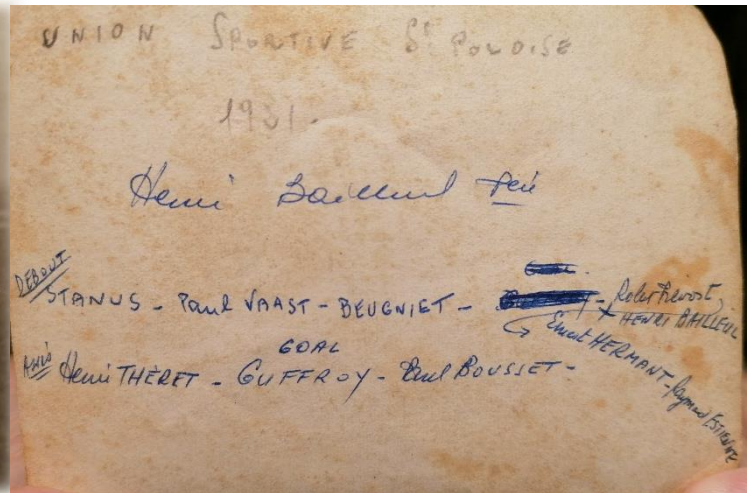 UNION SPORTIVE St POLOISE
1931.
Henri Bailleul père
DEBOUT
STANUS - Paul VAAST - BEUGNIET - Robert Prévost,
HENRI BAILLEUL
Ernest HERMANT - Raymond ESTIENNE
GOAL
Assis Henri THÉRET - GUFFROY - Paul BOUSSET -